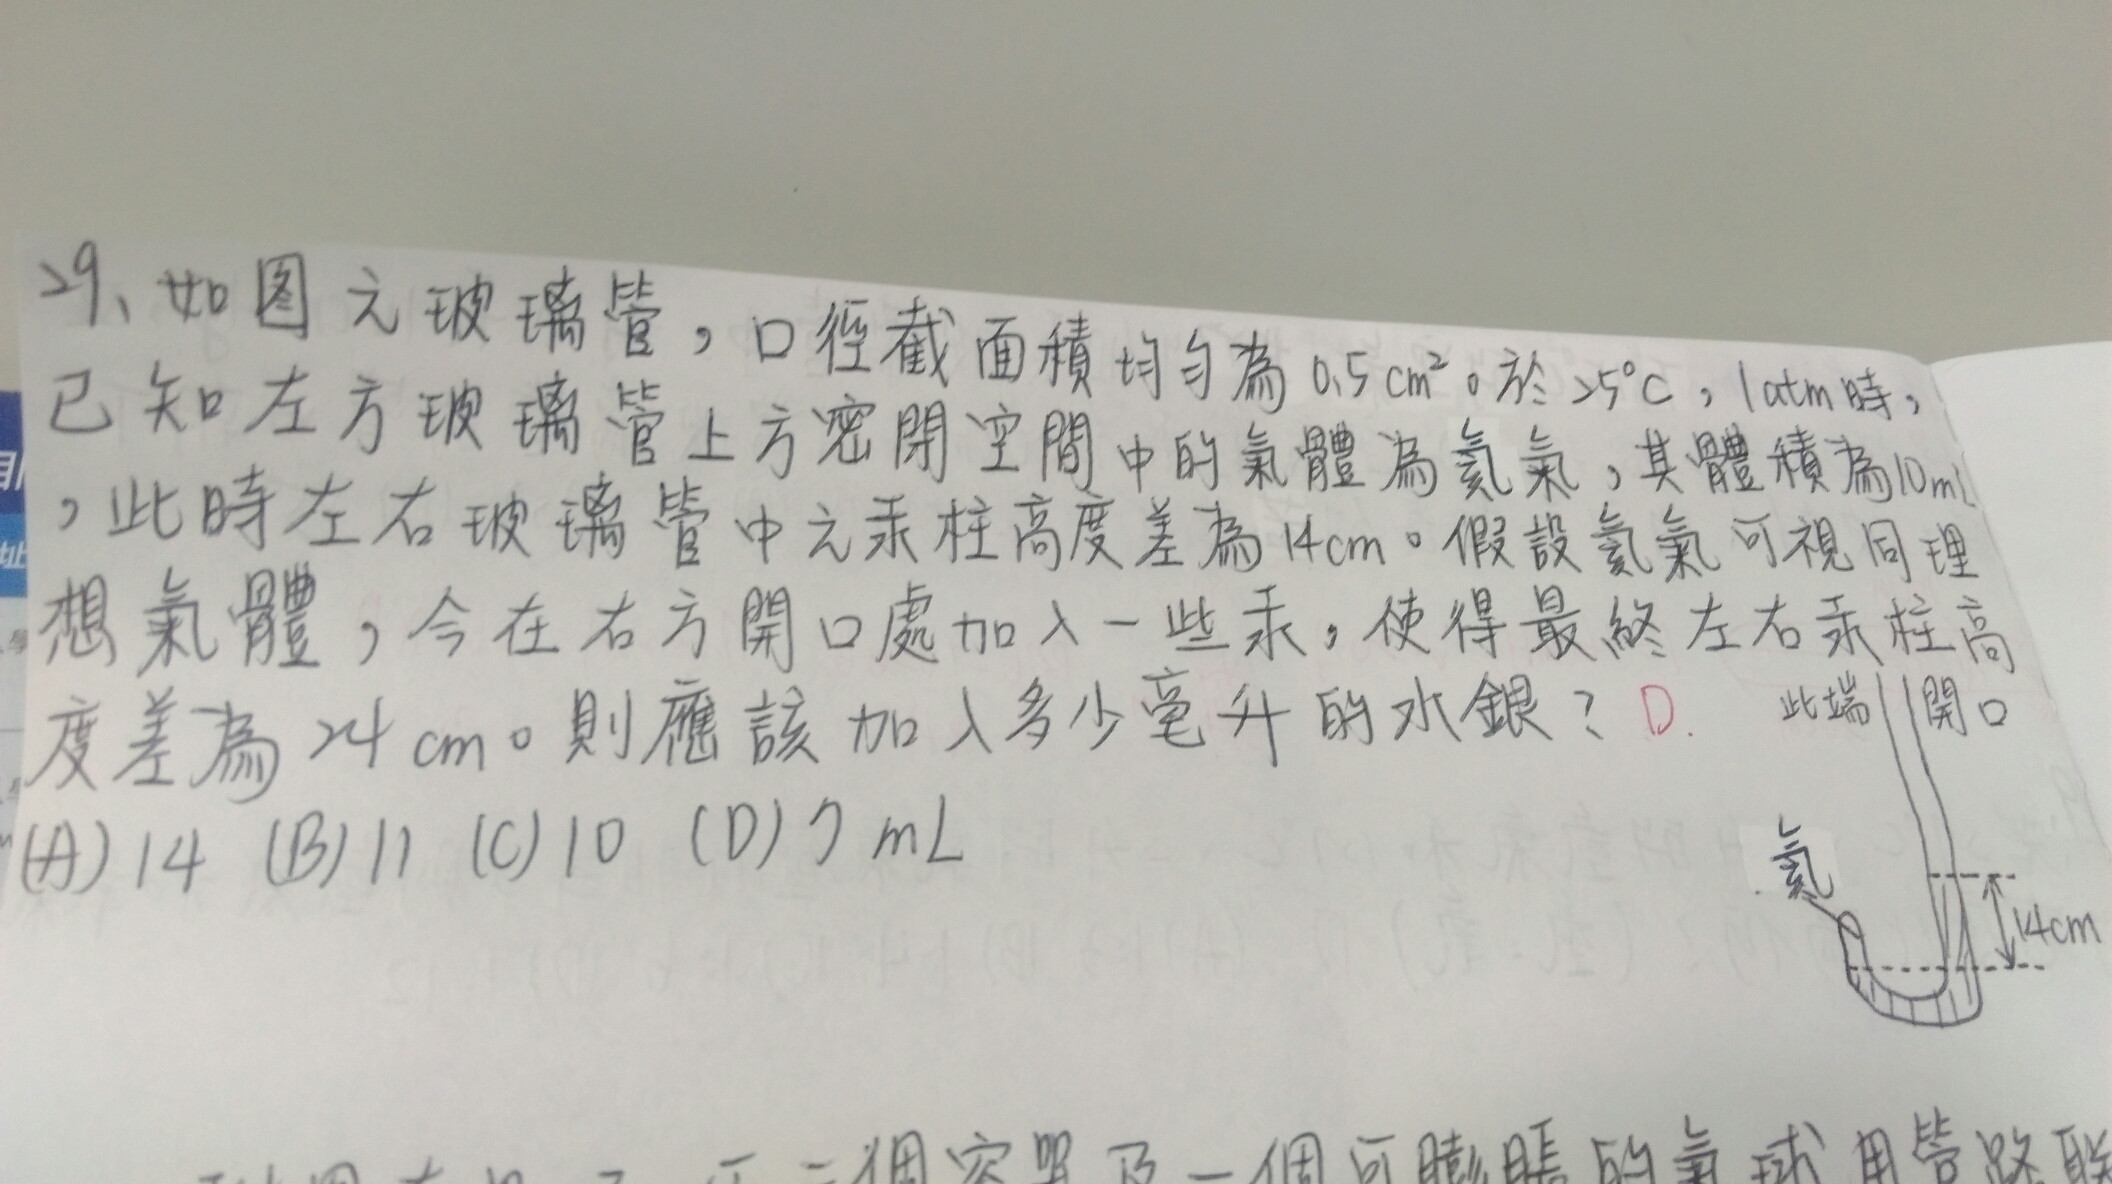 29、如图之玻璃管，口徑截面積均勻為0.5cm²。於25°C，1atm時，
已知左方玻璃管上方密閉空間中的氣體為氦氣，其體積為10mL
，此時左右玻璃管中之汞柱高度差為14cm。假設氦氣可視同理
想氣體，今在右方開口處加入一些汞，使得最終左右汞柱高
度差為24cm。則應該加入多少毫升的水銀？D.
此端 開口
(A)14 (B)11 (C)10 (D)7mL
氦
14cm